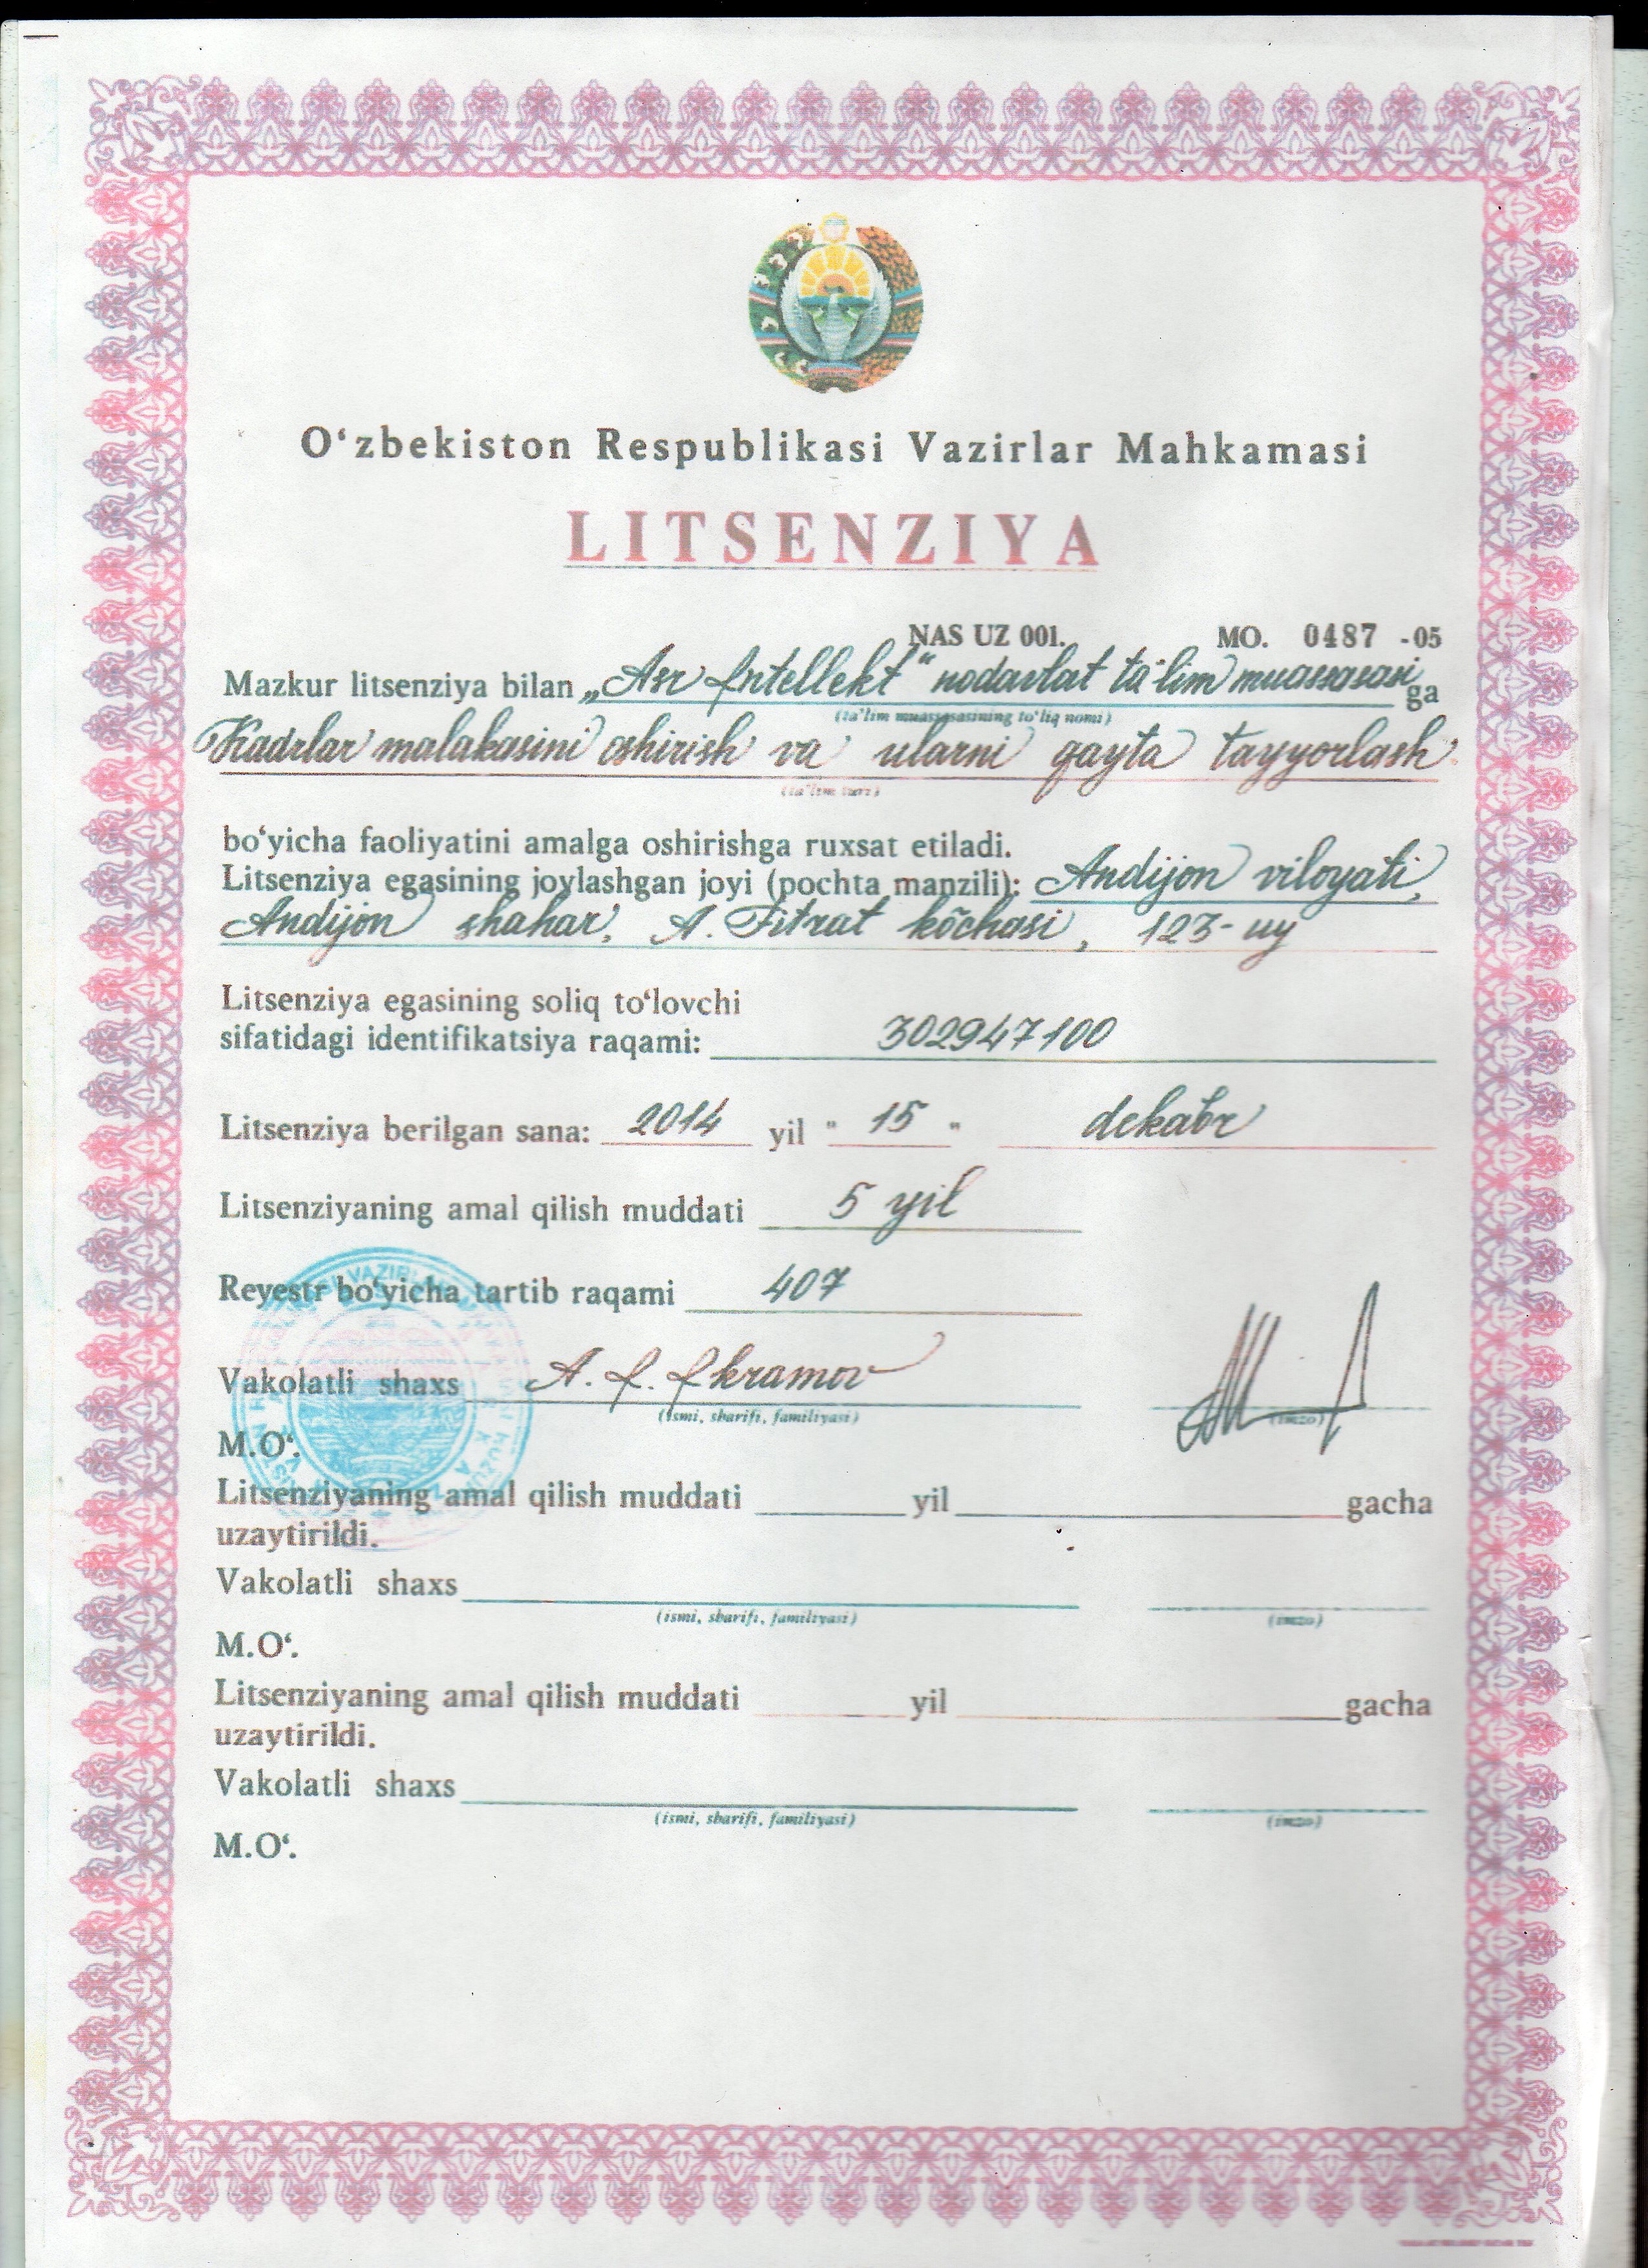 O‘zbekiston Respublikasi Vazirlar Mahkamasi
LITSENZIYA
NAS UZ 001. MO. 0487 -05
Mazkur litsenziya bilan „Asr Intellekt“ nodavlat ta'lim muassasasi ga
(ta'lim muassasasining to'liq nomi)
Kadrlar malakasini oshirish va ularni qayta tayyorlash
(ta'lim turi)
bo‘yicha faoliyatini amalga oshirishga ruxsat etiladi.
Litsenziya egasining joylashgan joyi (pochta manzili): Andijon viloyati,
Andijon shahar, A. Fitrat kõchasi, 123-uy
Litsenziya egasining soliq to‘lovchi
sifatidagi identifikatsiya raqami: 302947100
Litsenziya berilgan sana: 2014 yil "15" dekabr
Litsenziyaning amal qilish muddati 5 yil
Reyestr bo‘yicha tartib raqami 407
Vakolatli shaxs A. I. Ikramov
(ismi, sharifi, familiyasi) (imzo)
M.O‘.
Litsenziyaning amal qilish muddati yil gacha
uzaytirildi.
Vakolatli shaxs
(ismi, sharifi, familiyasi) (imzo)
M.O‘.
Litsenziyaning amal qilish muddati yil gacha
uzaytirildi.
Vakolatli shaxs
(ismi, sharifi, familiyasi) (imzo)
M.O‘.